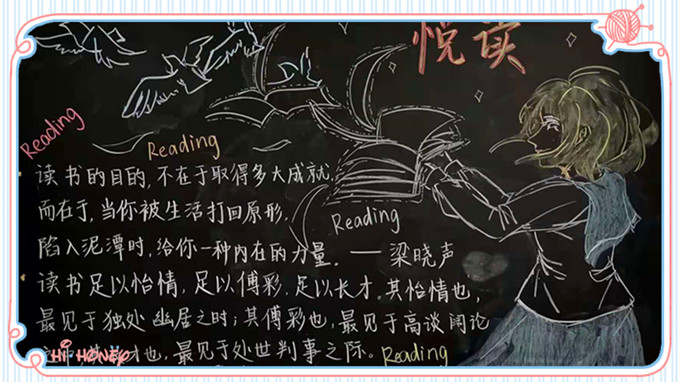 悦读
Reading
Reading
读书的目的,不在于取得多大成就.
而在于,当你被生活打回原形,
Reading
陷入泥潭时,给你一种内在的力量. ——梁晓声
读书足以怡情,足以傅彩,足以长才。其怡情也,
最见于独处幽居之时;其傅彩也,最见于高谈阔论
也,最见于处世判事之际。
Reading
HI HONEY